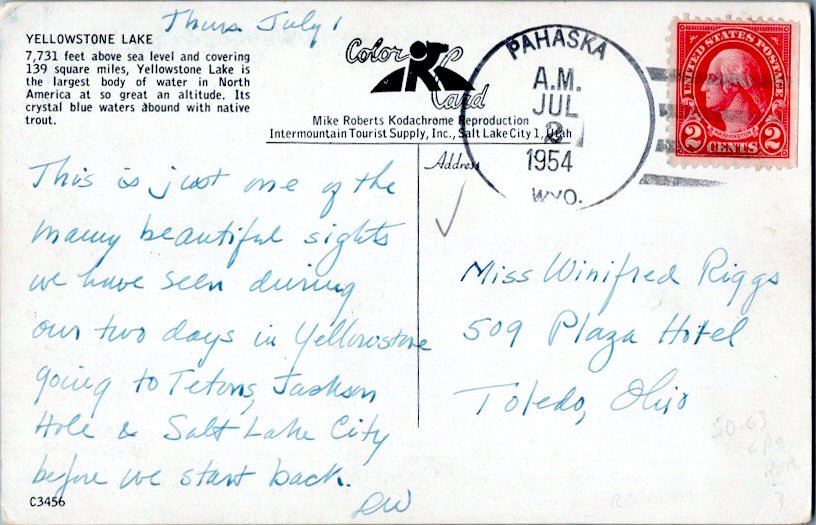 Thurs July 1
YELLOWSTONE LAKE
7,731 feet above sea level and covering
139 square miles, Yellowstone Lake is
the largest body of water in North
America at so great an altitude. Its
crystal blue waters abound with native
trout.
Color
Card
Mike Roberts Kodachrome Reproduction
Intermountain Tourist Supply, Inc., Salt Lake City 1, Utah
PAHASKA
A.M.
JUL
2
1954
WYO.
UNITED STATES POSTAGE
WASHINGTON
2 CENTS 2
Address
This is just one of the
many beautiful sights
we have seen during
our two days in Yellowstone
going to Tetons, Jackson
Hole & Salt Lake City
before we start back.
DW
Miss Winifred Riggs
509 Plaza Hotel
Toledo, Ohio
C3456
50-63